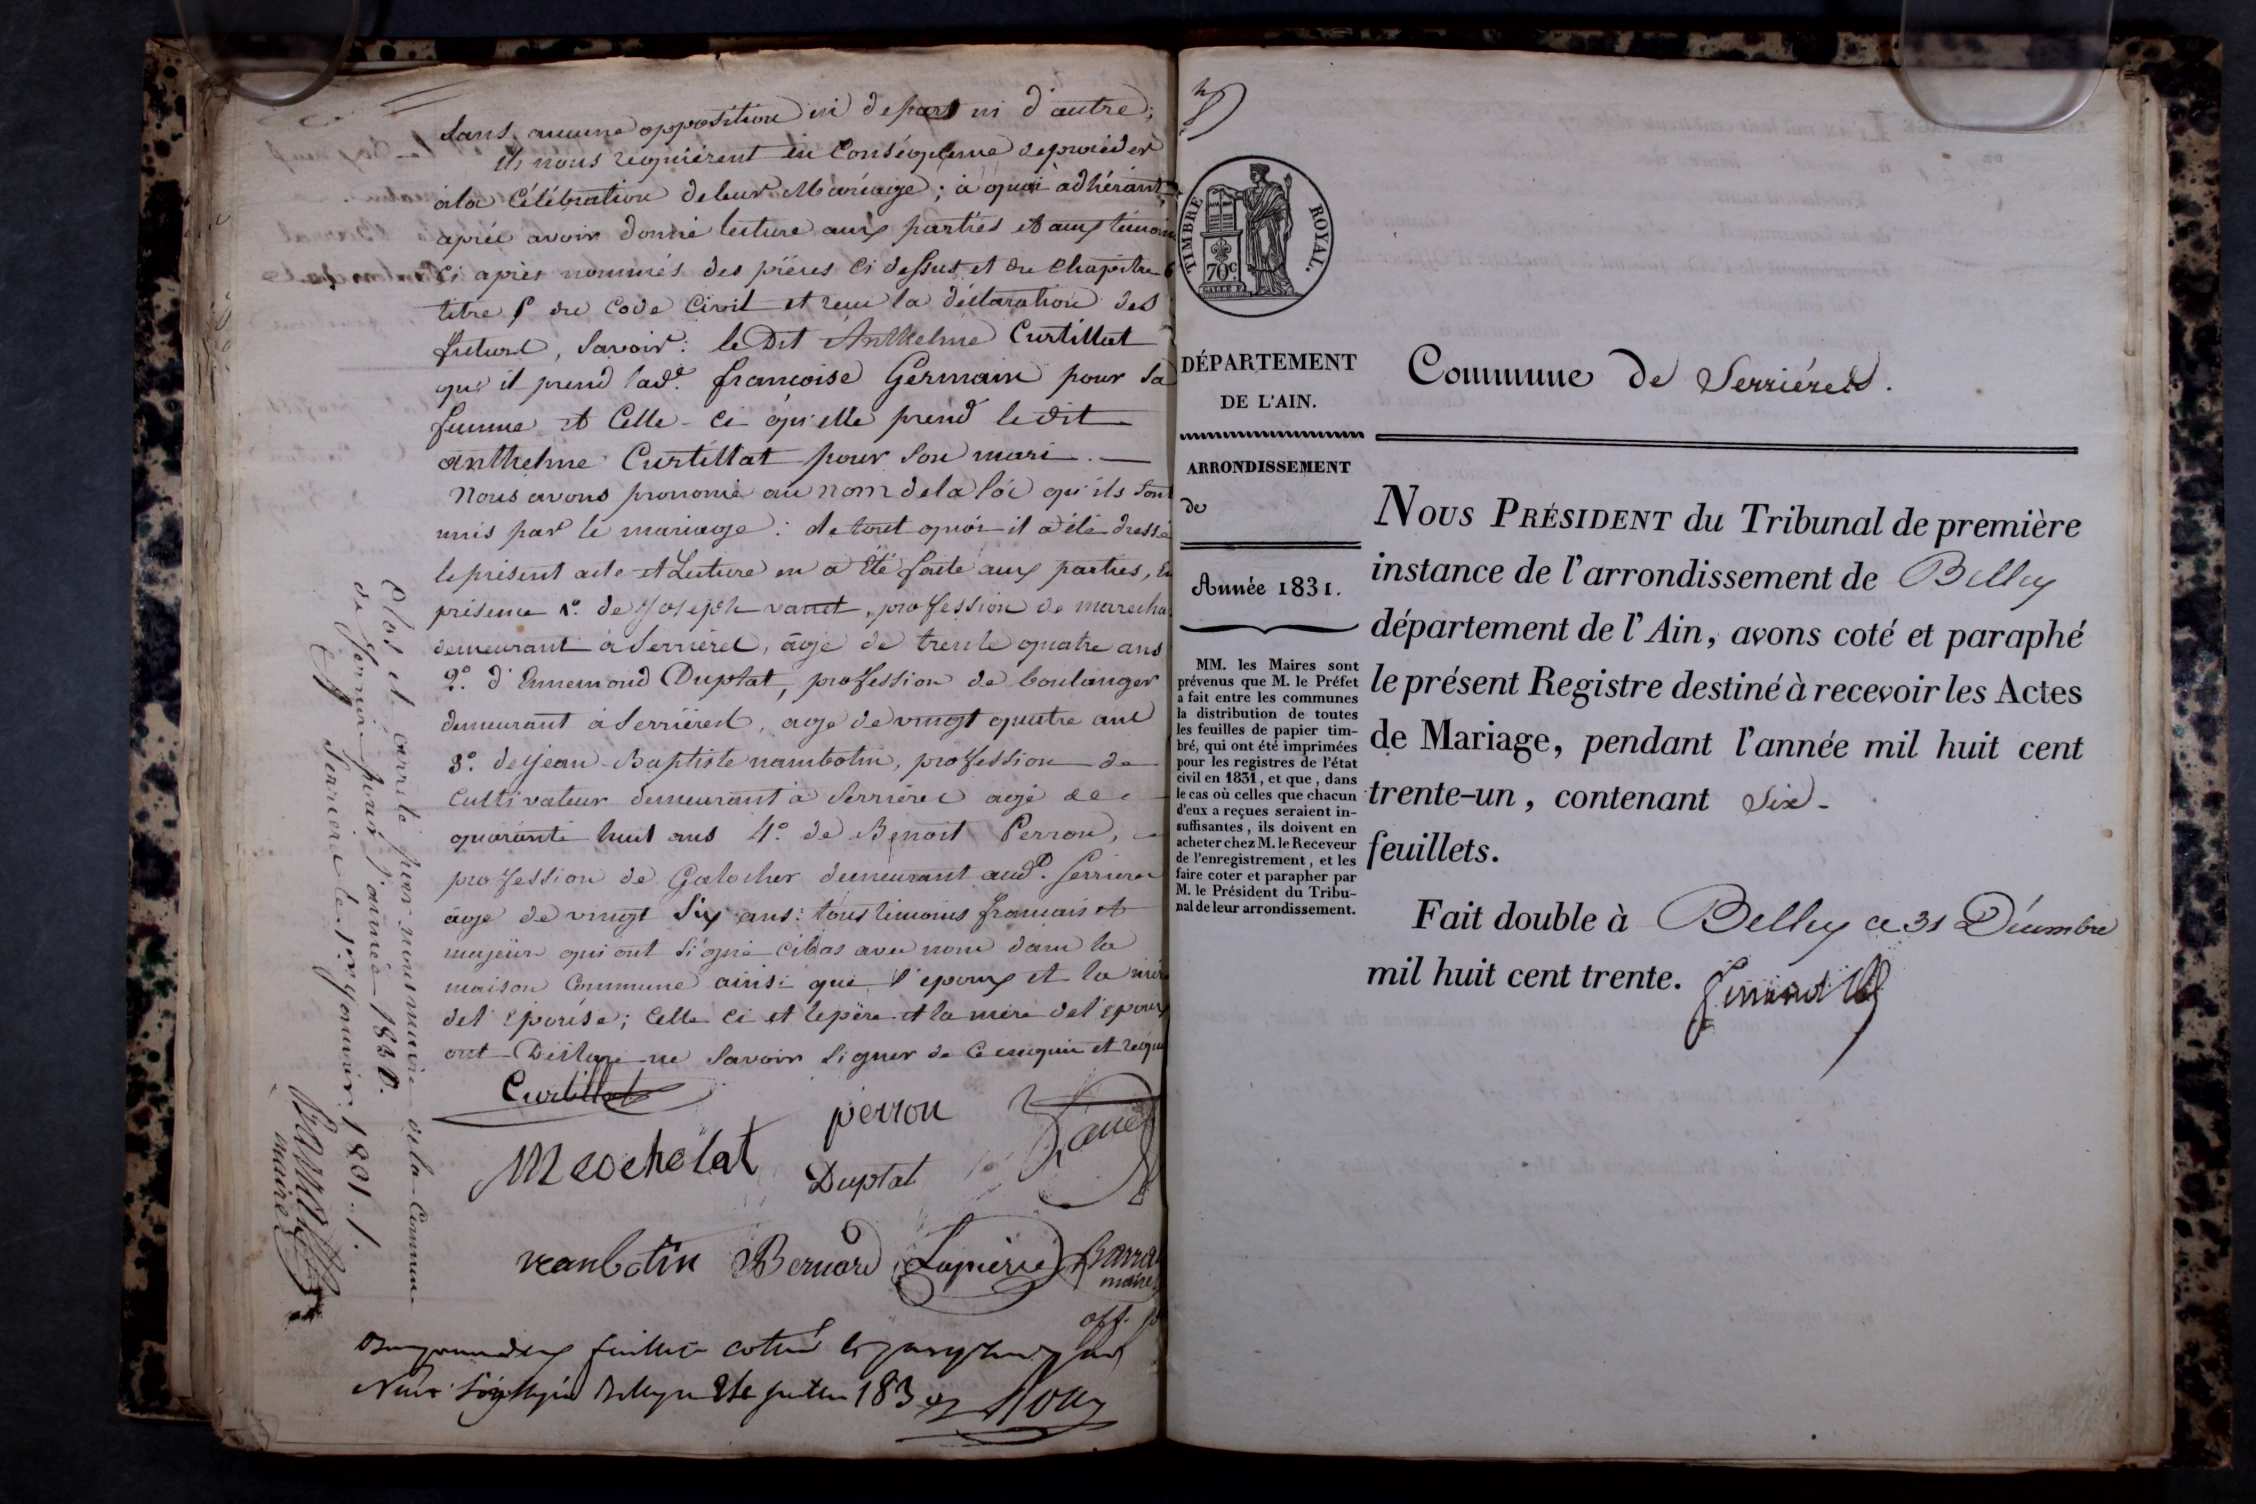 sans aucune opposition ni de part ni d'autre;
ils nous requièrent en Conséquence de procéder
à la Célébration de leur Mariage; à quoi adhérant,
après avoir donné lecture aux parties et aux témoins
ci après nommés des pièces ci dessus et du Chapitre 6
titre 5 du Code Civil et reçu la déclaration des
futurs, Savoir: le Dit Anthelme Curtillat
qu'il prend lad.e françoise Germain pour sa
femme et Celle-ci qu'elle prend le dit
anthelme Curtillat pour son mari. —
Nous avons prononcé au nom de la loi qu'ils sont
unis par le mariage: de tout quoi il a été dressé
le présent acte et Lecture en a été faite aux parties, En
présence 1.o de Joseph vanet, proffession de marechal
demeurant à Serrières, âgé de trente quatre ans
2.o d'Ennemond Duplat, proffession de boulanger
demeurant à Serrières, agé de vingt quatre ans
3.o de jean-Baptiste nambotin, proffession de
Cultivateur demeurant à Serrières agé de
quarante huit ans 4.o de Benoit Perrou,
proffession de Galocher demeurant aud. Serrieres
âgé de vingt Six ans: tous témoins français et
majeurs qui ont Signé ci bas avec nous dans la
maison Commune ainsi que l'epoux et la mère
de l'épouse; Celle ci et le père et la mère de l'époux
ont Déclaré ne Savoir Signer de ce enquis et requis
Curtillat
perrou
Vanet
Meochelat
Duplat
nambotin Bernard Lapierre Barral
maire
off.
feuillets cotté et par
Nous 183
Clos et arrêté par nous maire de la Commune
de Serrières pour l'année 1830.
à Serrières le 1.er janvier 1831.
maire
TIMBRE ROYAL.
70c.
DÉPARTEMENT
DE L'AIN.
ARRONDISSEMENT
de
Année 1831.
MM. les Maires sont
prévenus que M. le Préfet
a fait entre les communes
la distribution de toutes
les feuilles de papier tim-
bré, qui ont été imprimées
pour les registres de l'état
civil en 1831, et que, dans
le cas où celles que chacun
d'eux a reçues seraient in-
suffisantes, ils doivent en
acheter chez M. le Receveur
de l'enregistrement, et les
faire coter et parapher par
M. le Président du Tribu-
nal de leur arrondissement.
Commune de Serrières.
NOUS PRÉSIDENT du Tribunal de première
instance de l'arrondissement de Belley
département de l'Ain, avons coté et paraphé
le présent Registre destiné à recevoir les Actes
de Mariage, pendant l'année mil huit cent
trente-un, contenant Six-
feuillets.
Fait double à Belley ce 31 Décembre
mil huit cent trente.